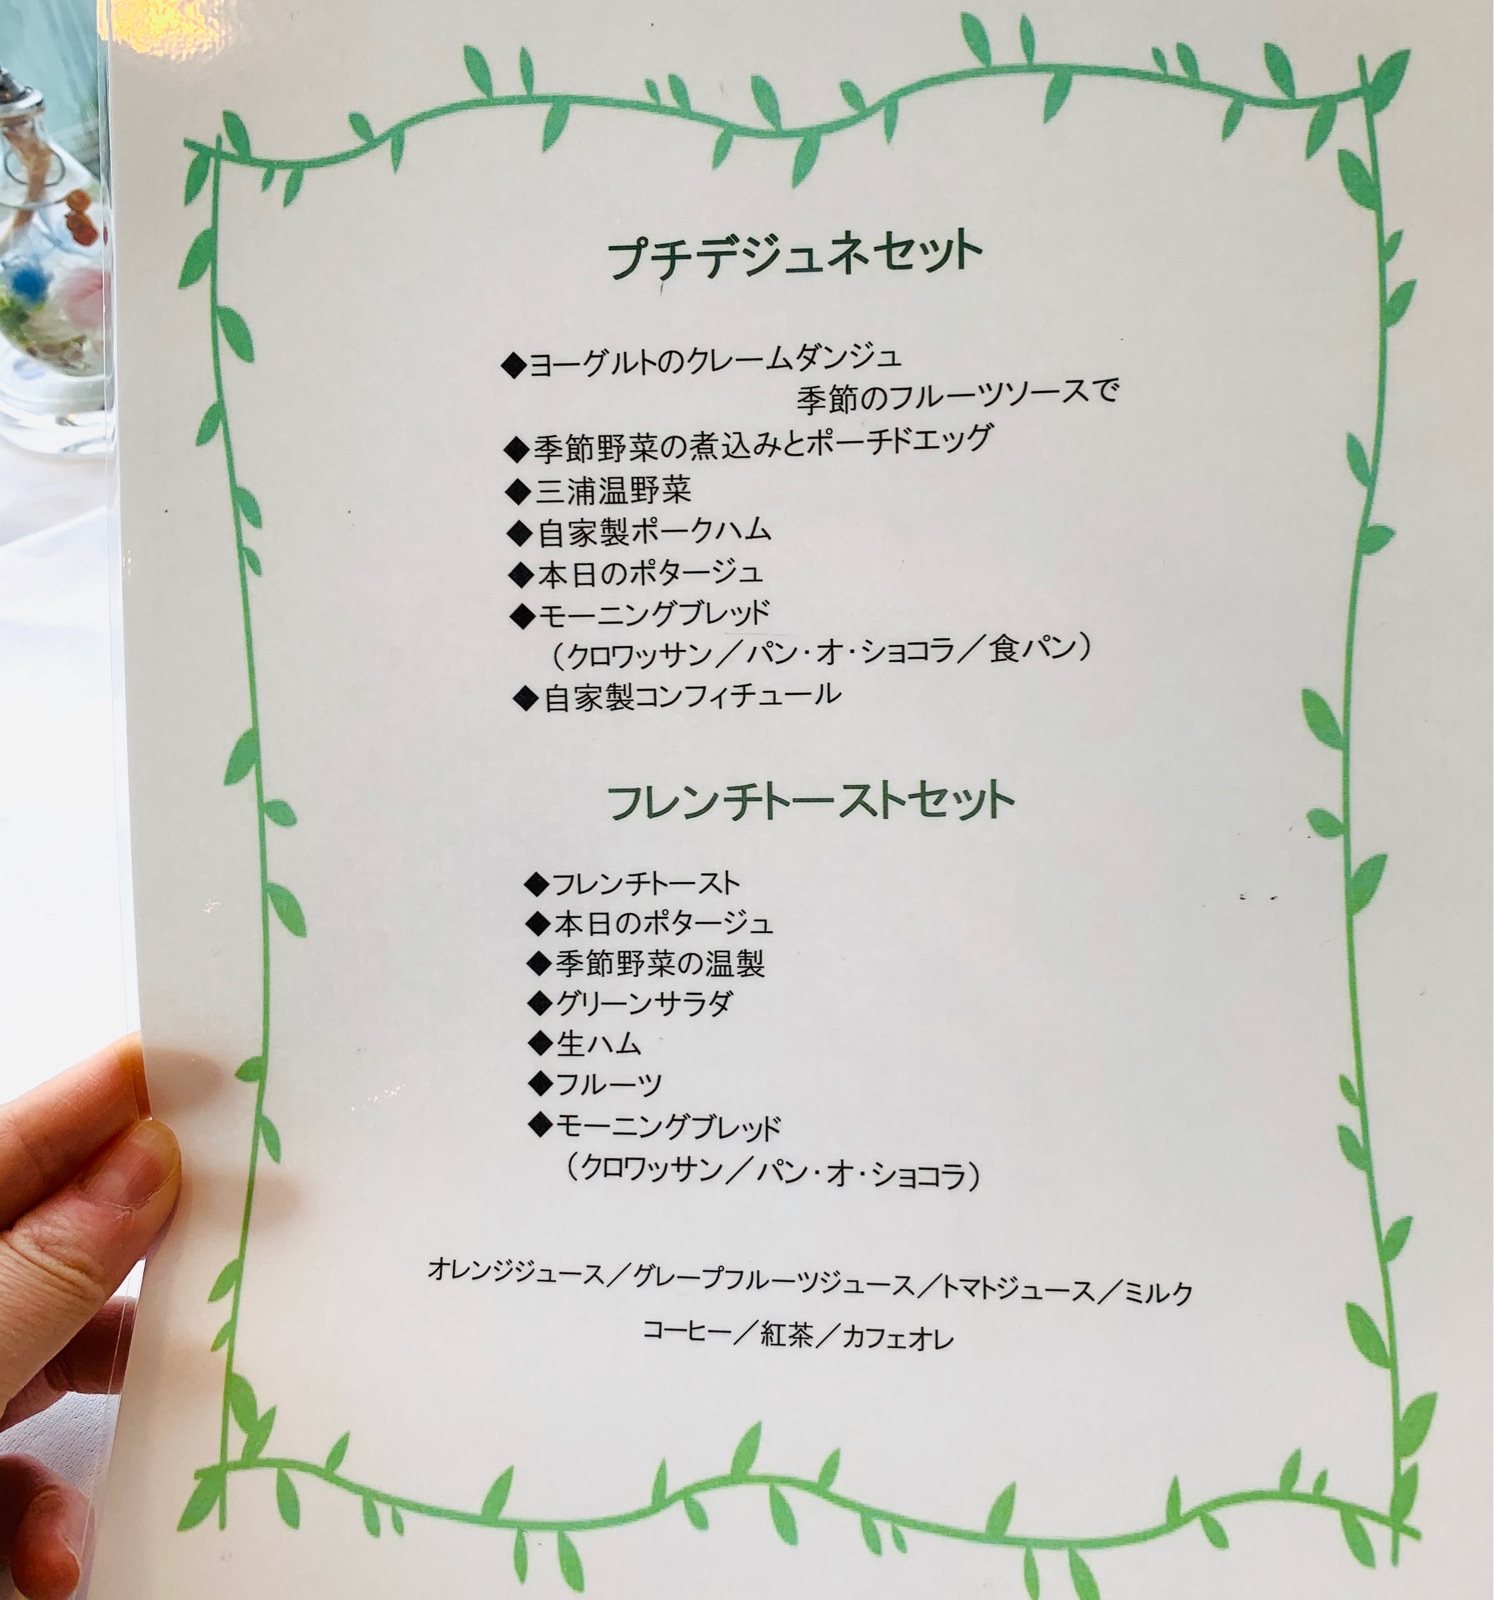 プチデジュネセット
◆ヨーグルトのクレームダンジュ
季節のフルーツソースで
◆季節野菜の煮込みとポーチドエッグ
◆三浦温野菜
◆自家製ポークハム
◆本日のポタージュ
◆モーニングブレッド
（クロワッサン／パン・オ・ショコラ／食パン）
◆自家製コンフィチュール
フレンチトーストセット
◆フレンチトースト
◆本日のポタージュ
◆季節野菜の温製
◆グリーンサラダ
◆生ハム
◆フルーツ
◆モーニングブレッド
（クロワッサン／パン・オ・ショコラ）
オレンジジュース／グレープフルーツジュース／トマトジュース／ミルク
コーヒー／紅茶／カフェオレ